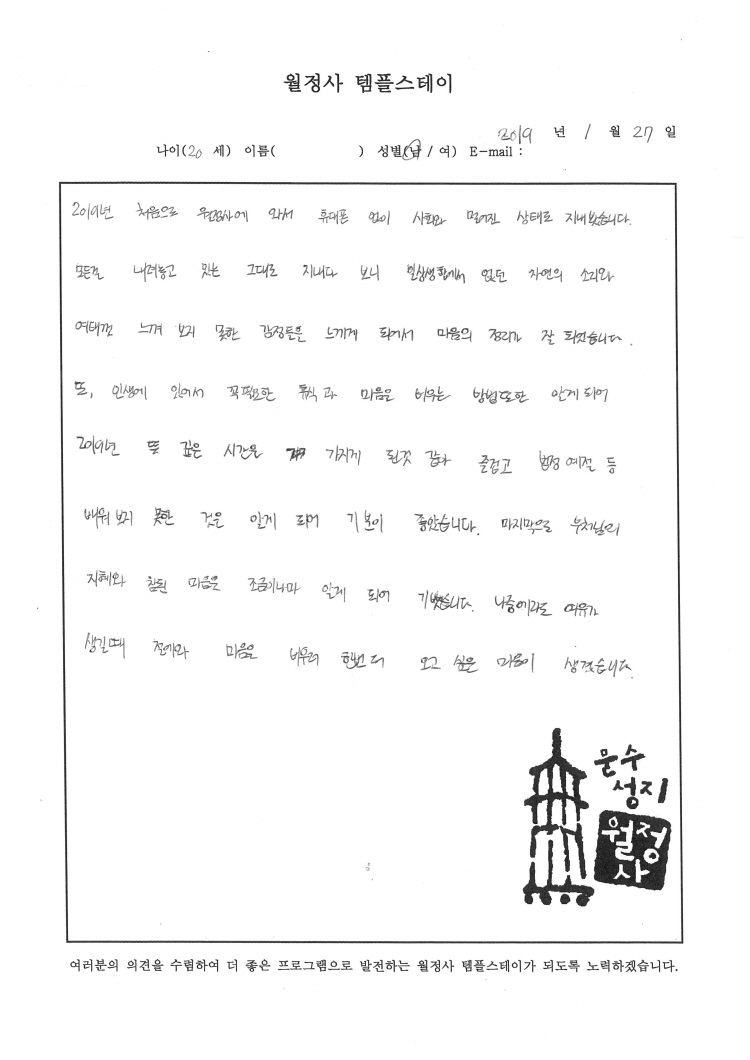 월정사 템플스테이
2019 년 1 월 27 일
나이(20 세) 이름( ) 성별(남 / 여) E-mail :
2019년 처음으로 월정사에 와서 휴대폰 없이 사회와 멀어진 상태로 지내봤습니다.
모든걸 내려놓고 있는 그대로 지내다 보니 일상생활에서 잊었던 자연의 소리와
여태껏 느껴 보지 못한 감정들을 느끼게 되어서 마음의 정리가 잘 되었습니다.
또, 인생에 있어서 꼭필요한 휴식과 마음을 비우는 방법또한 알게 되어
2019년 뜻 깊은 시간을 가지게 된것 같아 즐겁고 법정 예절 등
배워 보지 못한 것을 알게 되어 기분이 좋았습니다. 마지막으로 부처님의
지혜와 참된 마음을 조금이나마 알게 되어 기뻤습니다. 나중에라도 여유가
생길때 와 마음을 비우러 한번 더 오고 싶은 마음이 생겼습니다.
문수
성지
월정
사
여러분의 의견을 수렴하여 더 좋은 프로그램으로 발전하는 월정사 템플스테이가 되도록 노력하겠습니다.